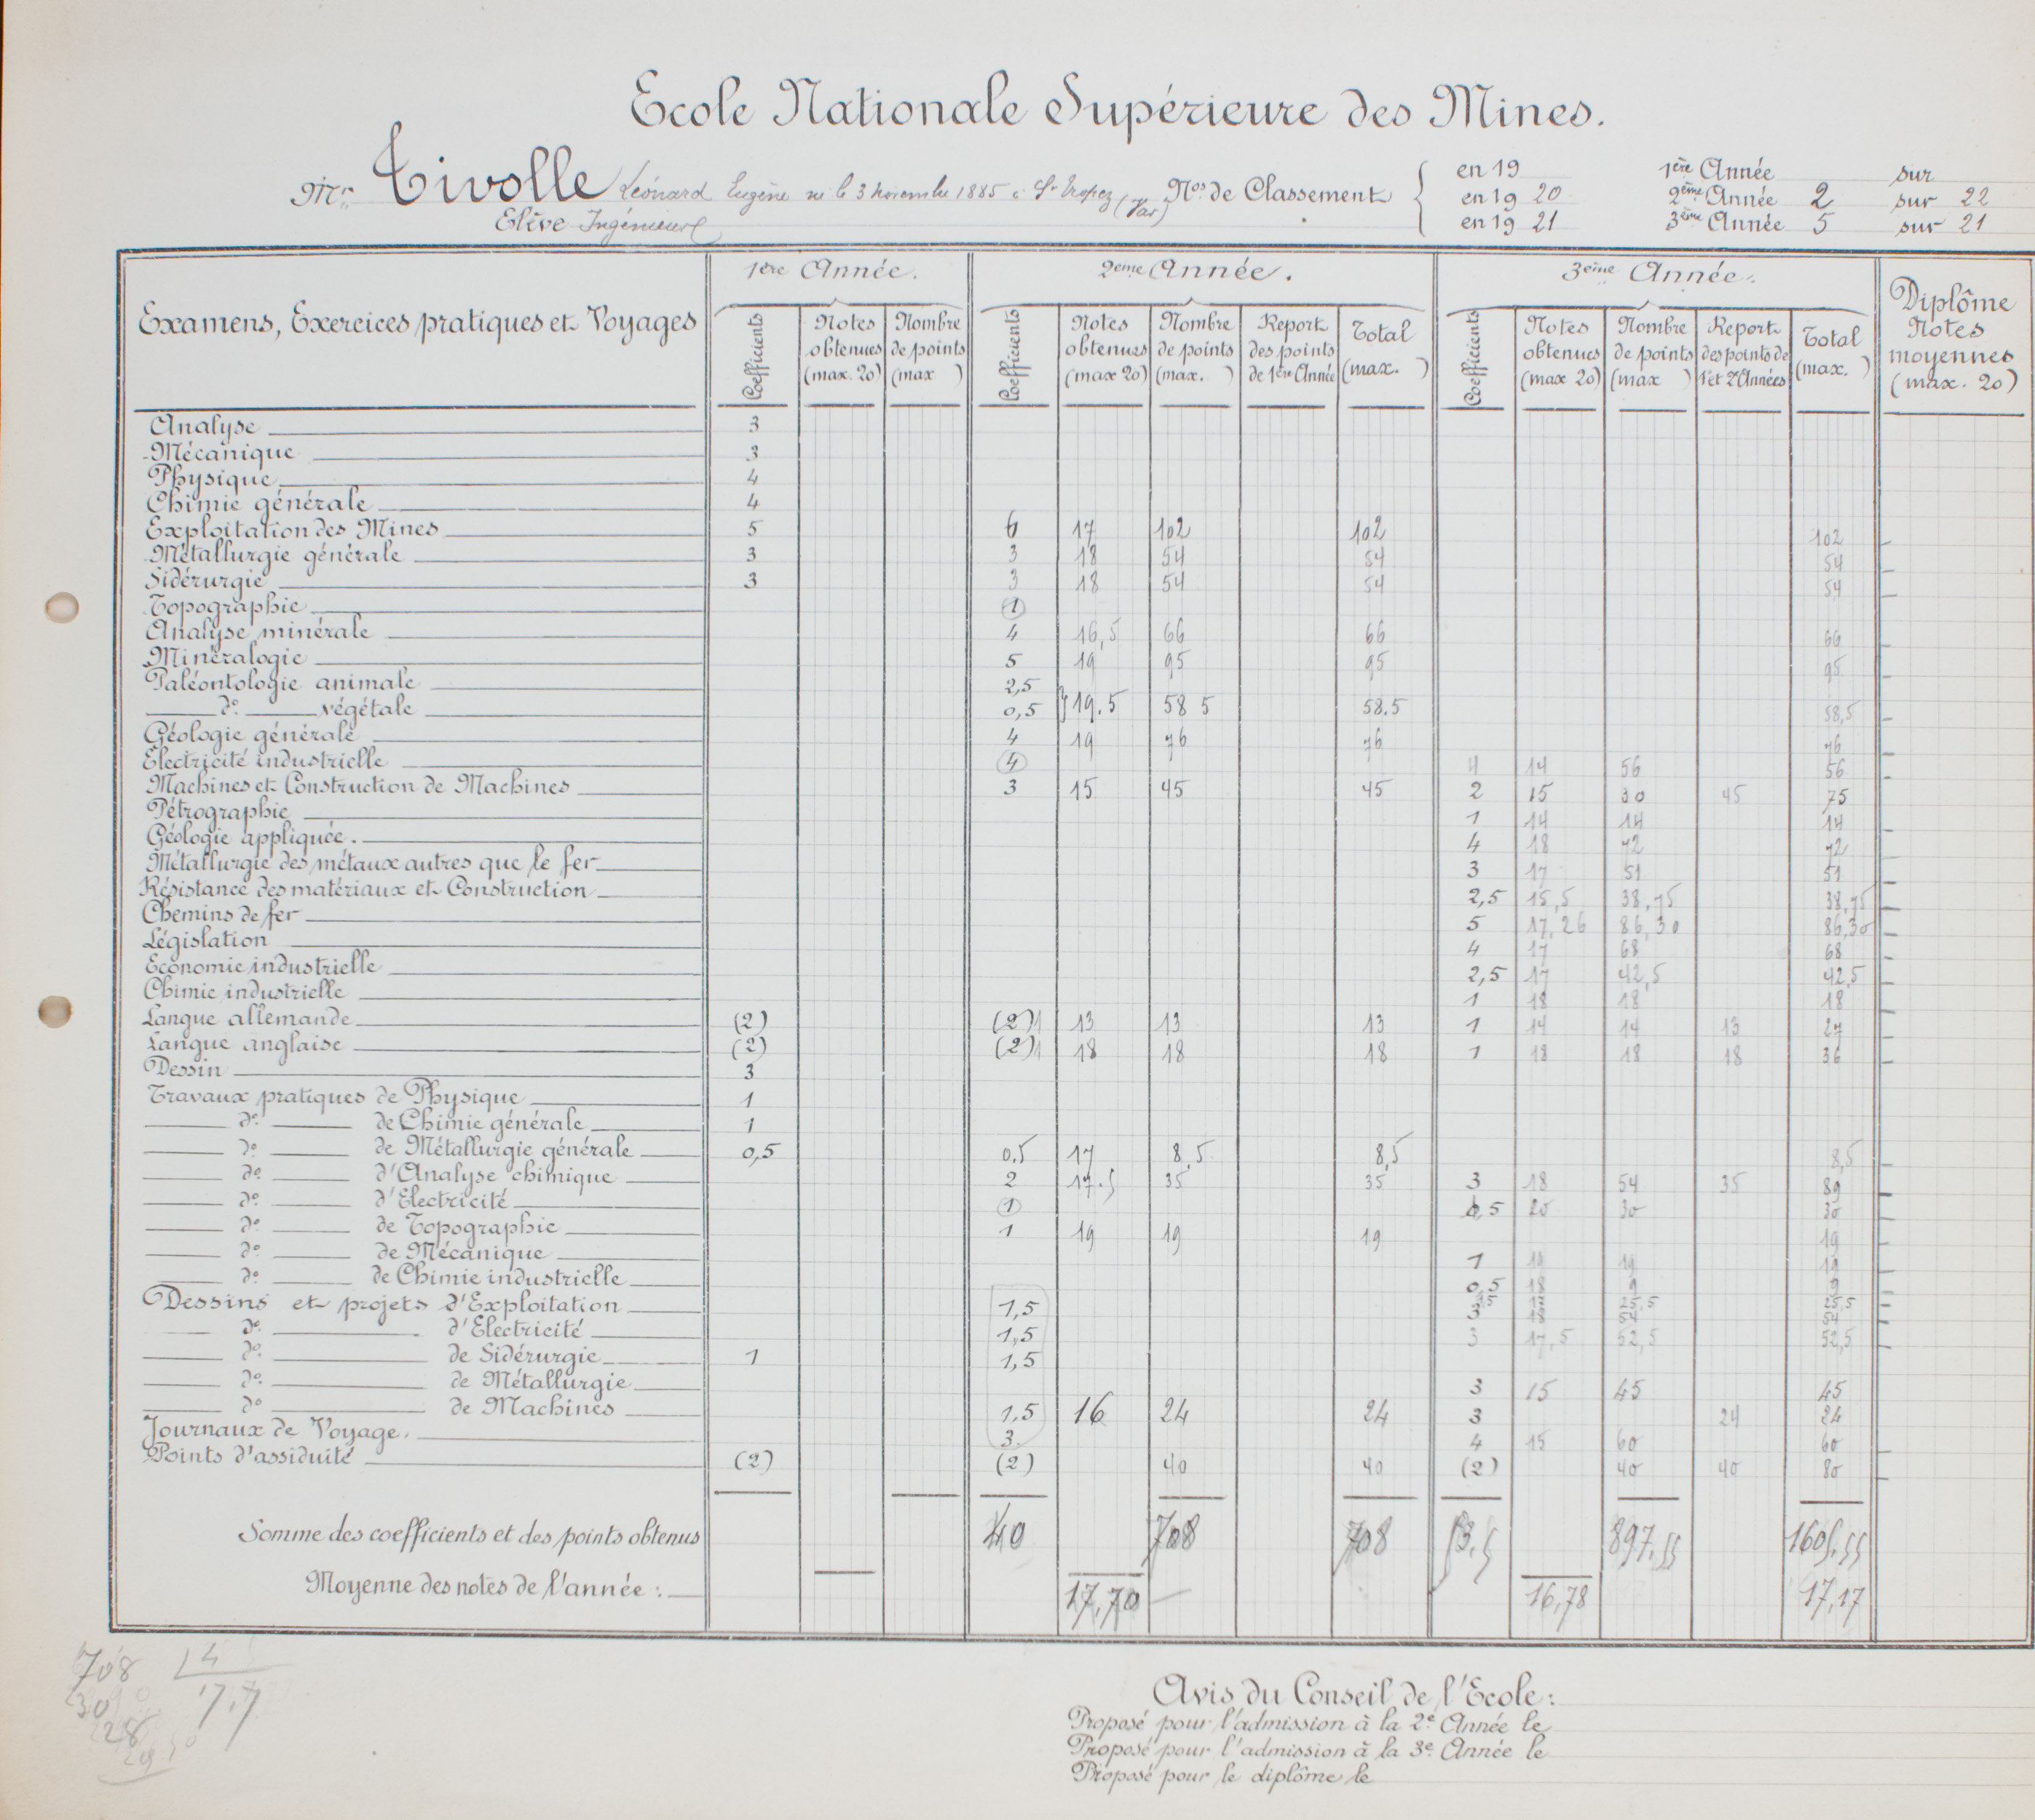 Ecole Nationale Supérieure des Mines.
Mr Tivolle Léonard Eugène né le 3 novembre 1885 à St Tropez (Var) Nos de Classement
Elève Ingénieur
en 19 1ère Année sur
en 19 20 2ème Année 2 sur 22
en 19 21 3ème Année 5 sur 21
Examens, Exercices pratiques et Voyages 1ère Année. 2ème Année. 3ème Année. Diplôme Notes moyennes (max. 20)
Coefficients Notes obtenues (max. 20) Nombre de points (max )
Coefficients Notes obtenues (max 20) Nombre de points (max. ) Report des points de 1ère Année Total (max. )
Coefficients Notes obtenues (max 20) Nombre de points (max ) Report des points de 1et 2e Années Total (max. )
Analyse 3
Mécanique 3
Physique 4
Chimie générale 4
Exploitation des Mines 5 6 17 102 102 102
Métallurgie générale 3 3 18 54 54 54
Sidérurgie 3 3 18 54 54 54
Topographie 1
Analyse minérale 4 16,5 66 66 66
Minéralogie 5 19 95 95 95
Paléontologie animale 2,5
do végétale 0,5 } 19.5 58 5 58.5 58,5
Géologie générale 4 19 76 76 76
Electricité industrielle 4 4 14 56 56
Machines et Construction de Machines 3 15 45 45 2 15 30 45 75
Pétrographie 1 14 14 14
Géologie appliquée. 4 18 72 72
Métallurgie des métaux autres que le fer 3 17 51 51
Résistance des matériaux et Construction 2,5 15,5 38,75 38,75
Chemins de fer 5 17,26 86,30 86,30
Législation 4 17 68 68
Economie industrielle 2,5 17 42,5 42,5
Chimie industrielle 1 18 18 18
Langue allemande (2) (2) 1 13 13 13 1 14 14 13 27
Langue anglaise (2) (2) 1 18 18 18 1 18 18 18 36
Dessin 3
Travaux pratiques de Physique 1
do de Chimie générale 1
do de Métallurgie générale 0,5 0,5 17 8,5 8,5 8,5
do d'Analyse chimique 2 17.5 35 35 3 18 54 35 89
do d'Electricité 1 5 20 30 30
do de Topographie 1 19 19 19 19
do de Mécanique 1 19 19
do de Chimie industrielle 0,5 18 9 9
Dessins et projets d'Exploitation 1,5 25,5 25,5
do d'Electricité 1,5 3 18 54 54
do de Sidérurgie 1 1,5 3 17,5 52,5 52,5
do de Métallurgie 3 15 45 45
do de Machines 1,5 16 24 24 3 24 24
Journaux de Voyage. 3. 4 15 60 60
Points d'assiduité (2) (2) 40 40 (2) 40 40 80
Somme des coefficients et des points obtenus 40 708 708 53,5 897,55 1605,55
Moyenne des notes de l'année : 17,70 16,78 17,17
708 4
30 17,7
28
Avis du Conseil de l'Ecole :
Proposé pour l'admission à la 2e Année le
Proposé pour l'admission à la 3e Année le
Proposé pour le diplôme le